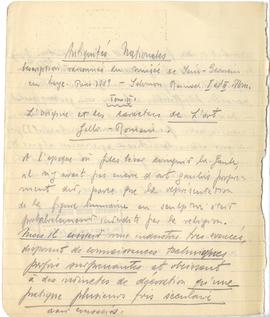 Antiquités Nationales
Description raisonnée du musée de Saint-Germain
en Laye. Paris 1889 - Salomon Reinach, I et II
L'origine et les caractères de l'art
Gallo-Romain.
A l'époque où César conquit la Gaule
il n'y avait pas encore d'art gaulois propre-
ment dit, parce que la représentation
de la figure humaine en sculpture était
probablement interdite par la religion.
Mais il existait une industrie très avancée,
disposant de connaissances techniques
parfois surprenantes et obéissant
à des principes de décoration qu'une
pratique plusieurs fois séculaire
avait consacrés.